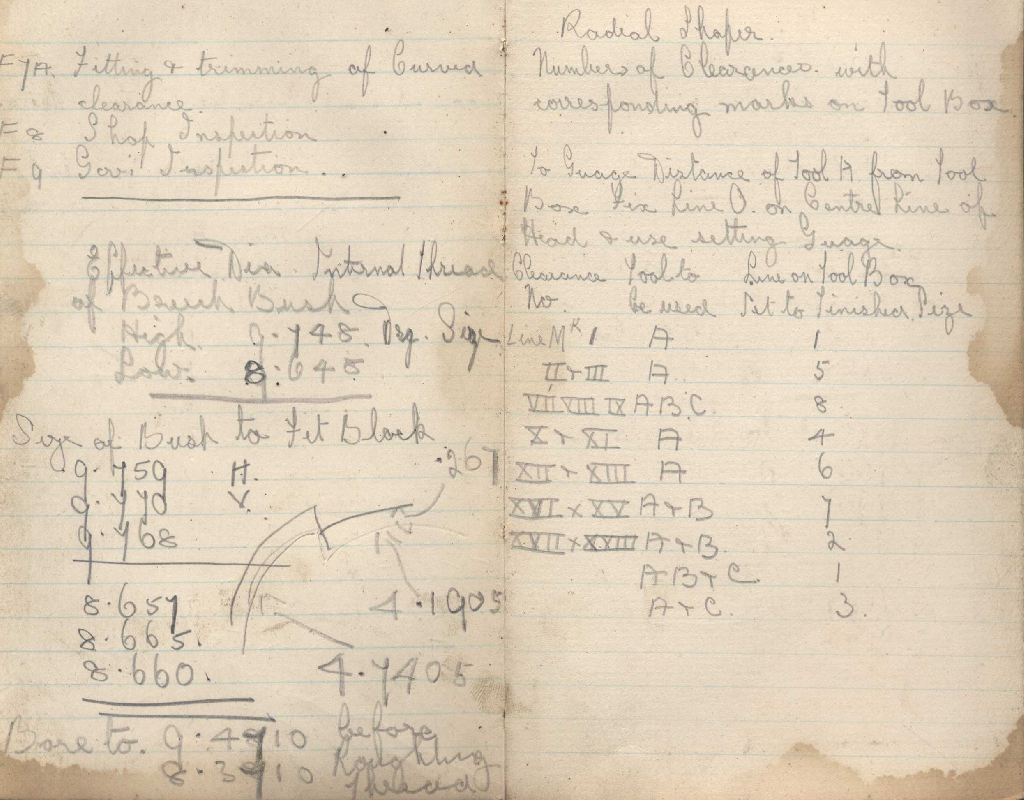 F 7A. Fitting & trimming of Curved
clearance
F 8 Shop Inspection
F 9 Govt Inspection..
Effective Dia. Internal Thread
of Breech Bush
High. 9.748. Drg. Size
Low. 8.648
Size of Bush to Fit Block
9.759 H.
9.770 V.
9.768
.267
8.657
8.665.
8.660.
4.1905
4.7405
Bore to. 9.4910 before
8.3910 Roughing
Thread
Radial Shaper.
Numbers of Clearances. with
corresponding marks on Tool Box
To Guage Distance of Tool A from Tool
Box Fix Line O. on Centre Line of
Head & use setting Guage.
Clearance Tool to Line on Tool Box
No. be used Set to Finished Size
Line Mk 1 A 1
II & III A 5
VII VIII IX A B.C. 8
X & XI A 4
XII & XIII A 6
XVI & XV A & B 7
XVII & XXIII A & B. 2
A B & C 1
A & C. 3.